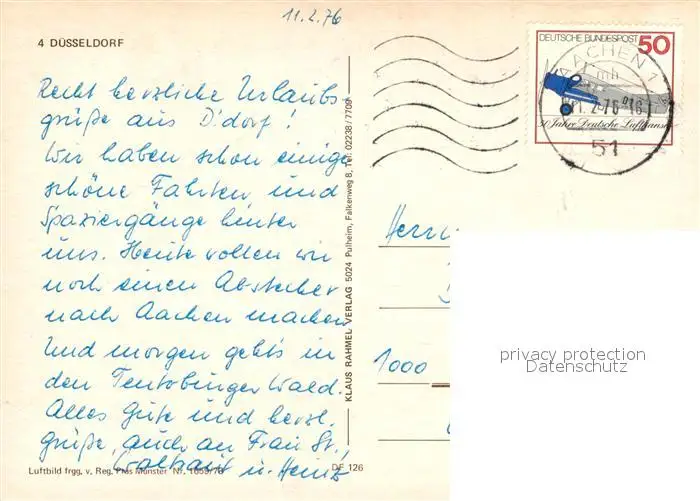 11.2.76
4 DÜSSELDORF
Recht herzliche Urlaubs-
grüße aus D'dorf!
Wir haben schon einige
schöne Fahrten und
Spaziergänge hinter
uns. Heute wollen wir
noch einen Abstecher
nach Aachen machen
Und morgen geht's in
den Teutoburger Wald.
Alles Gute und herzl.
grüße, auch an Frau St.,
u. Heinz
Luftbild frgg. v. Reg. Präs Münster Nr. 1659/76
DF 126
KLAUS RAHMEL VERLAG 5024 Pulheim, Falkenweg 8, Tel. 02238/7709
DEUTSCHE BUNDESPOST 50
50 Jahre Deutsche Lufthansa
AACHEN 1
mb
11.2.76-16
51
Herrn
1000
privacy protection
Datenschutz